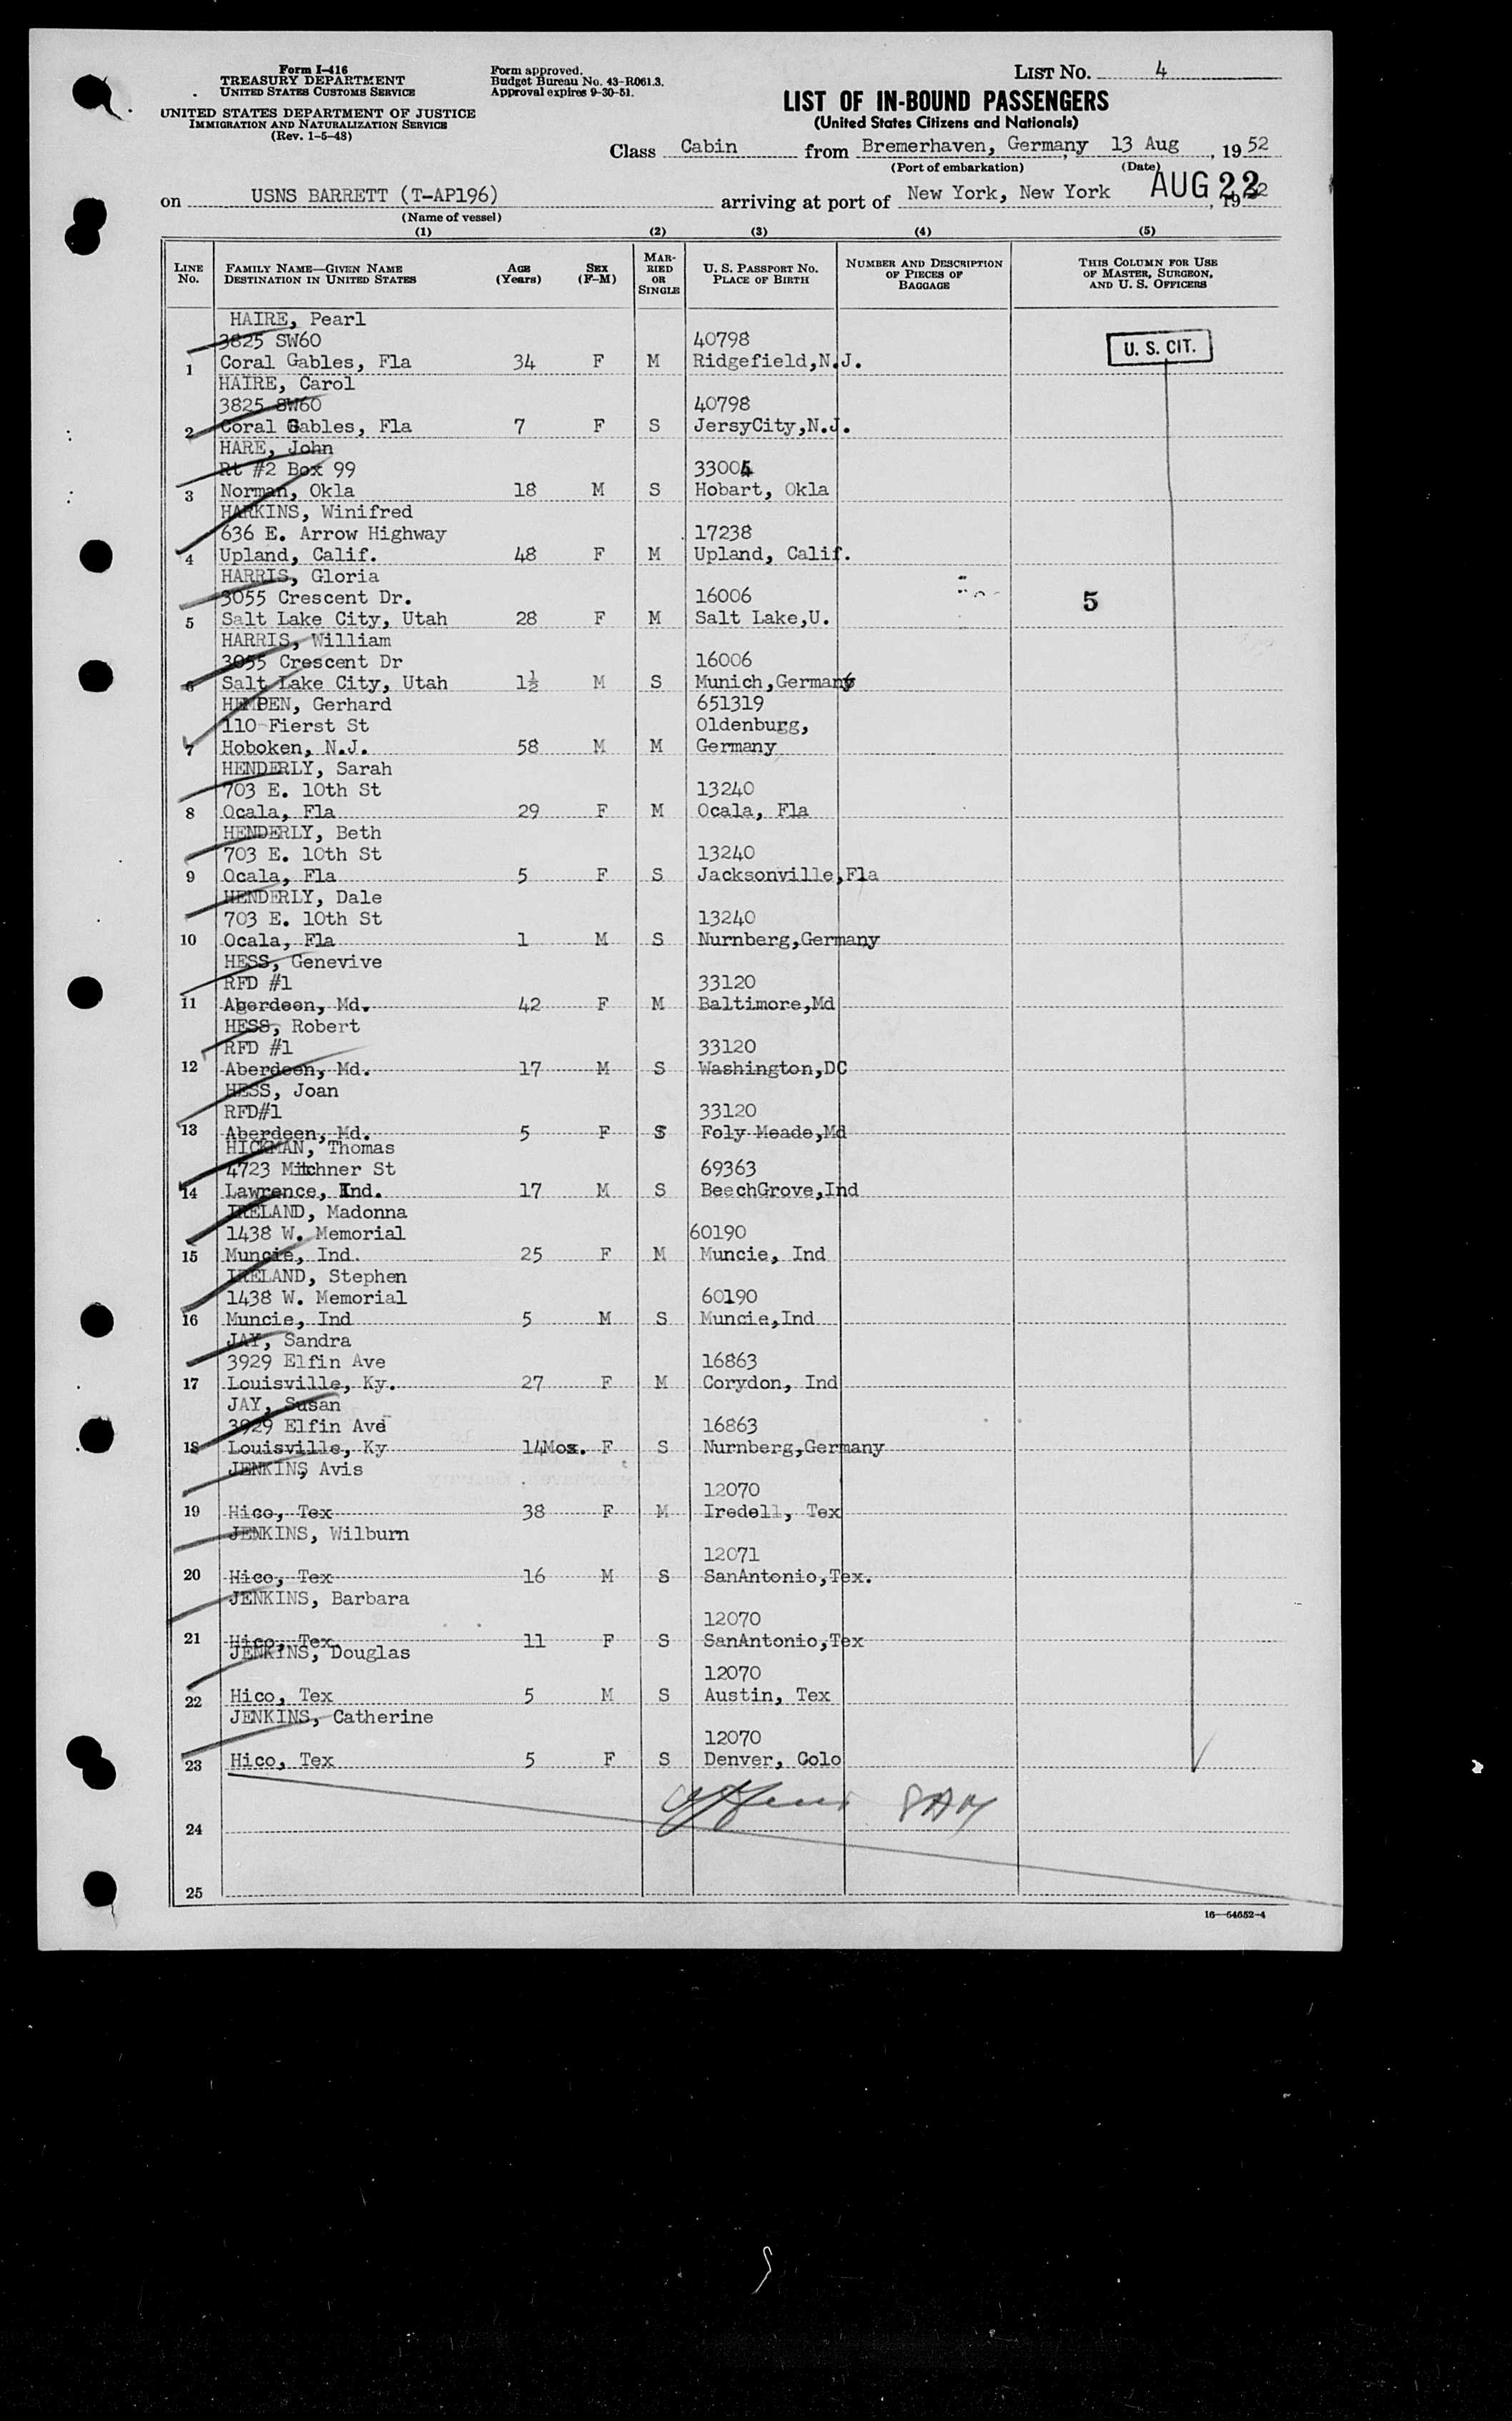 Form I-416
TREASURY DEPARTMENT
UNITED STATES CUSTOMS SERVICE
UNITED STATES DEPARTMENT OF JUSTICE
IMMIGRATION AND NATURALIZATION SERVICE
(Rev. 1-5-48)
Form approved.
Budget Bureau No. 43-R061.3.
Approval expires 9-30-51.
LIST No. 4
LIST OF IN-BOUND PASSENGERS
(United States Citizens and Nationals)
Class Cabin from Bremerhaven, Germany, 13 Aug, 1952
(Port of embarkation) (Date)
on USNS BARRETT (T-AP196) arriving at port of New York, New York AUG 22, 1952
(Name of vessel)
(1) (2) (3) (4) (5)
LINE No. FAMILY NAME—GIVEN NAME DESTINATION IN UNITED STATES AGE (Years) SEX (F-M) MARRIED OR SINGLE U. S. PASSPORT No. PLACE OF BIRTH NUMBER AND DESCRIPTION OF PIECES OF BAGGAGE THIS COLUMN FOR USE OF MASTER, SURGEON, AND U. S. OFFICERS
HAIRE, Pearl
3825 SW60 40798
1 Coral Gables, Fla 34 F M Ridgefield,N.J. U. S. CIT.
HAIRE, Carol
3825 SW60 40798
2 Coral Gables, Fla 7 F S JersyCity,N.J.
HARE, John
Rt #2 Box 99 33004
3 Norman, Okla 18 M S Hobart, Okla
HARKINS, Winifred
636 E. Arrow Highway 17238
4 Upland, Calif. 48 F M Upland, Calif.
HARRIS, Gloria
3055 Crescent Dr. 16006 5
5 Salt Lake City, Utah 28 F M Salt Lake,U.
HARRIS, William
3055 Crescent Dr 16006
6 Salt Lake City, Utah 1½ M S Munich,Germany
HEMPEN, Gerhard 651319
110 Fierst St Oldenburg,
7 Hoboken, N.J. 58 M M Germany
HENDERLY, Sarah
703 E. 10th St 13240
8 Ocala, Fla 29 F M Ocala, Fla
HENDERLY, Beth
703 E. 10th St 13240
9 Ocala, Fla 5 F S Jacksonville,Fla
HENDERLY, Dale
703 E. 10th St 13240
10 Ocala, Fla 1 M S Nurnberg,Germany
HESS, Genevive
RFD #1 33120
11 Aberdeen, Md. 42 F M Baltimore,Md
HESS, Robert
RFD #1 33120
12 Aberdeen, Md. 17 M S Washington,DC
HESS, Joan
RFD#1 33120
13 Aberdeen, Md. 5 F S Foly Meade,Md
HICKMAN, Thomas
4723 Mitchner St 69363
14 Lawrence, Ind. 17 M S BeechGrove,Ind
IRELAND, Madonna
1438 W. Memorial 60190
15 Muncie, Ind. 25 F M Muncie, Ind
IRELAND, Stephen
1438 W. Memorial 60190
16 Muncie, Ind 5 M S Muncie,Ind
JAY, Sandra
3929 Elfin Ave 16863
17 Louisville, Ky. 27 F M Corydon, Ind
JAY, Susan
3929 Elfin Ave 16863
18 Louisville, Ky 14Mos. F S Nurnberg,Germany
JENKINS, Avis
12070
19 Hico, Tex 38 F M Iredell, Tex
JENKINS, Wilburn
12071
20 Hico, Tex 16 M S SanAntonio,Tex.
JENKINS, Barbara
12070
21 Hico, Tex 11 F S SanAntonio,Tex
JENKINS, Douglas
12070
22 Hico, Tex 5 M S Austin, Tex
JENKINS, Catherine
12070
23 Hico, Tex 5 F S Denver, Colo
24
25
16—54652-4